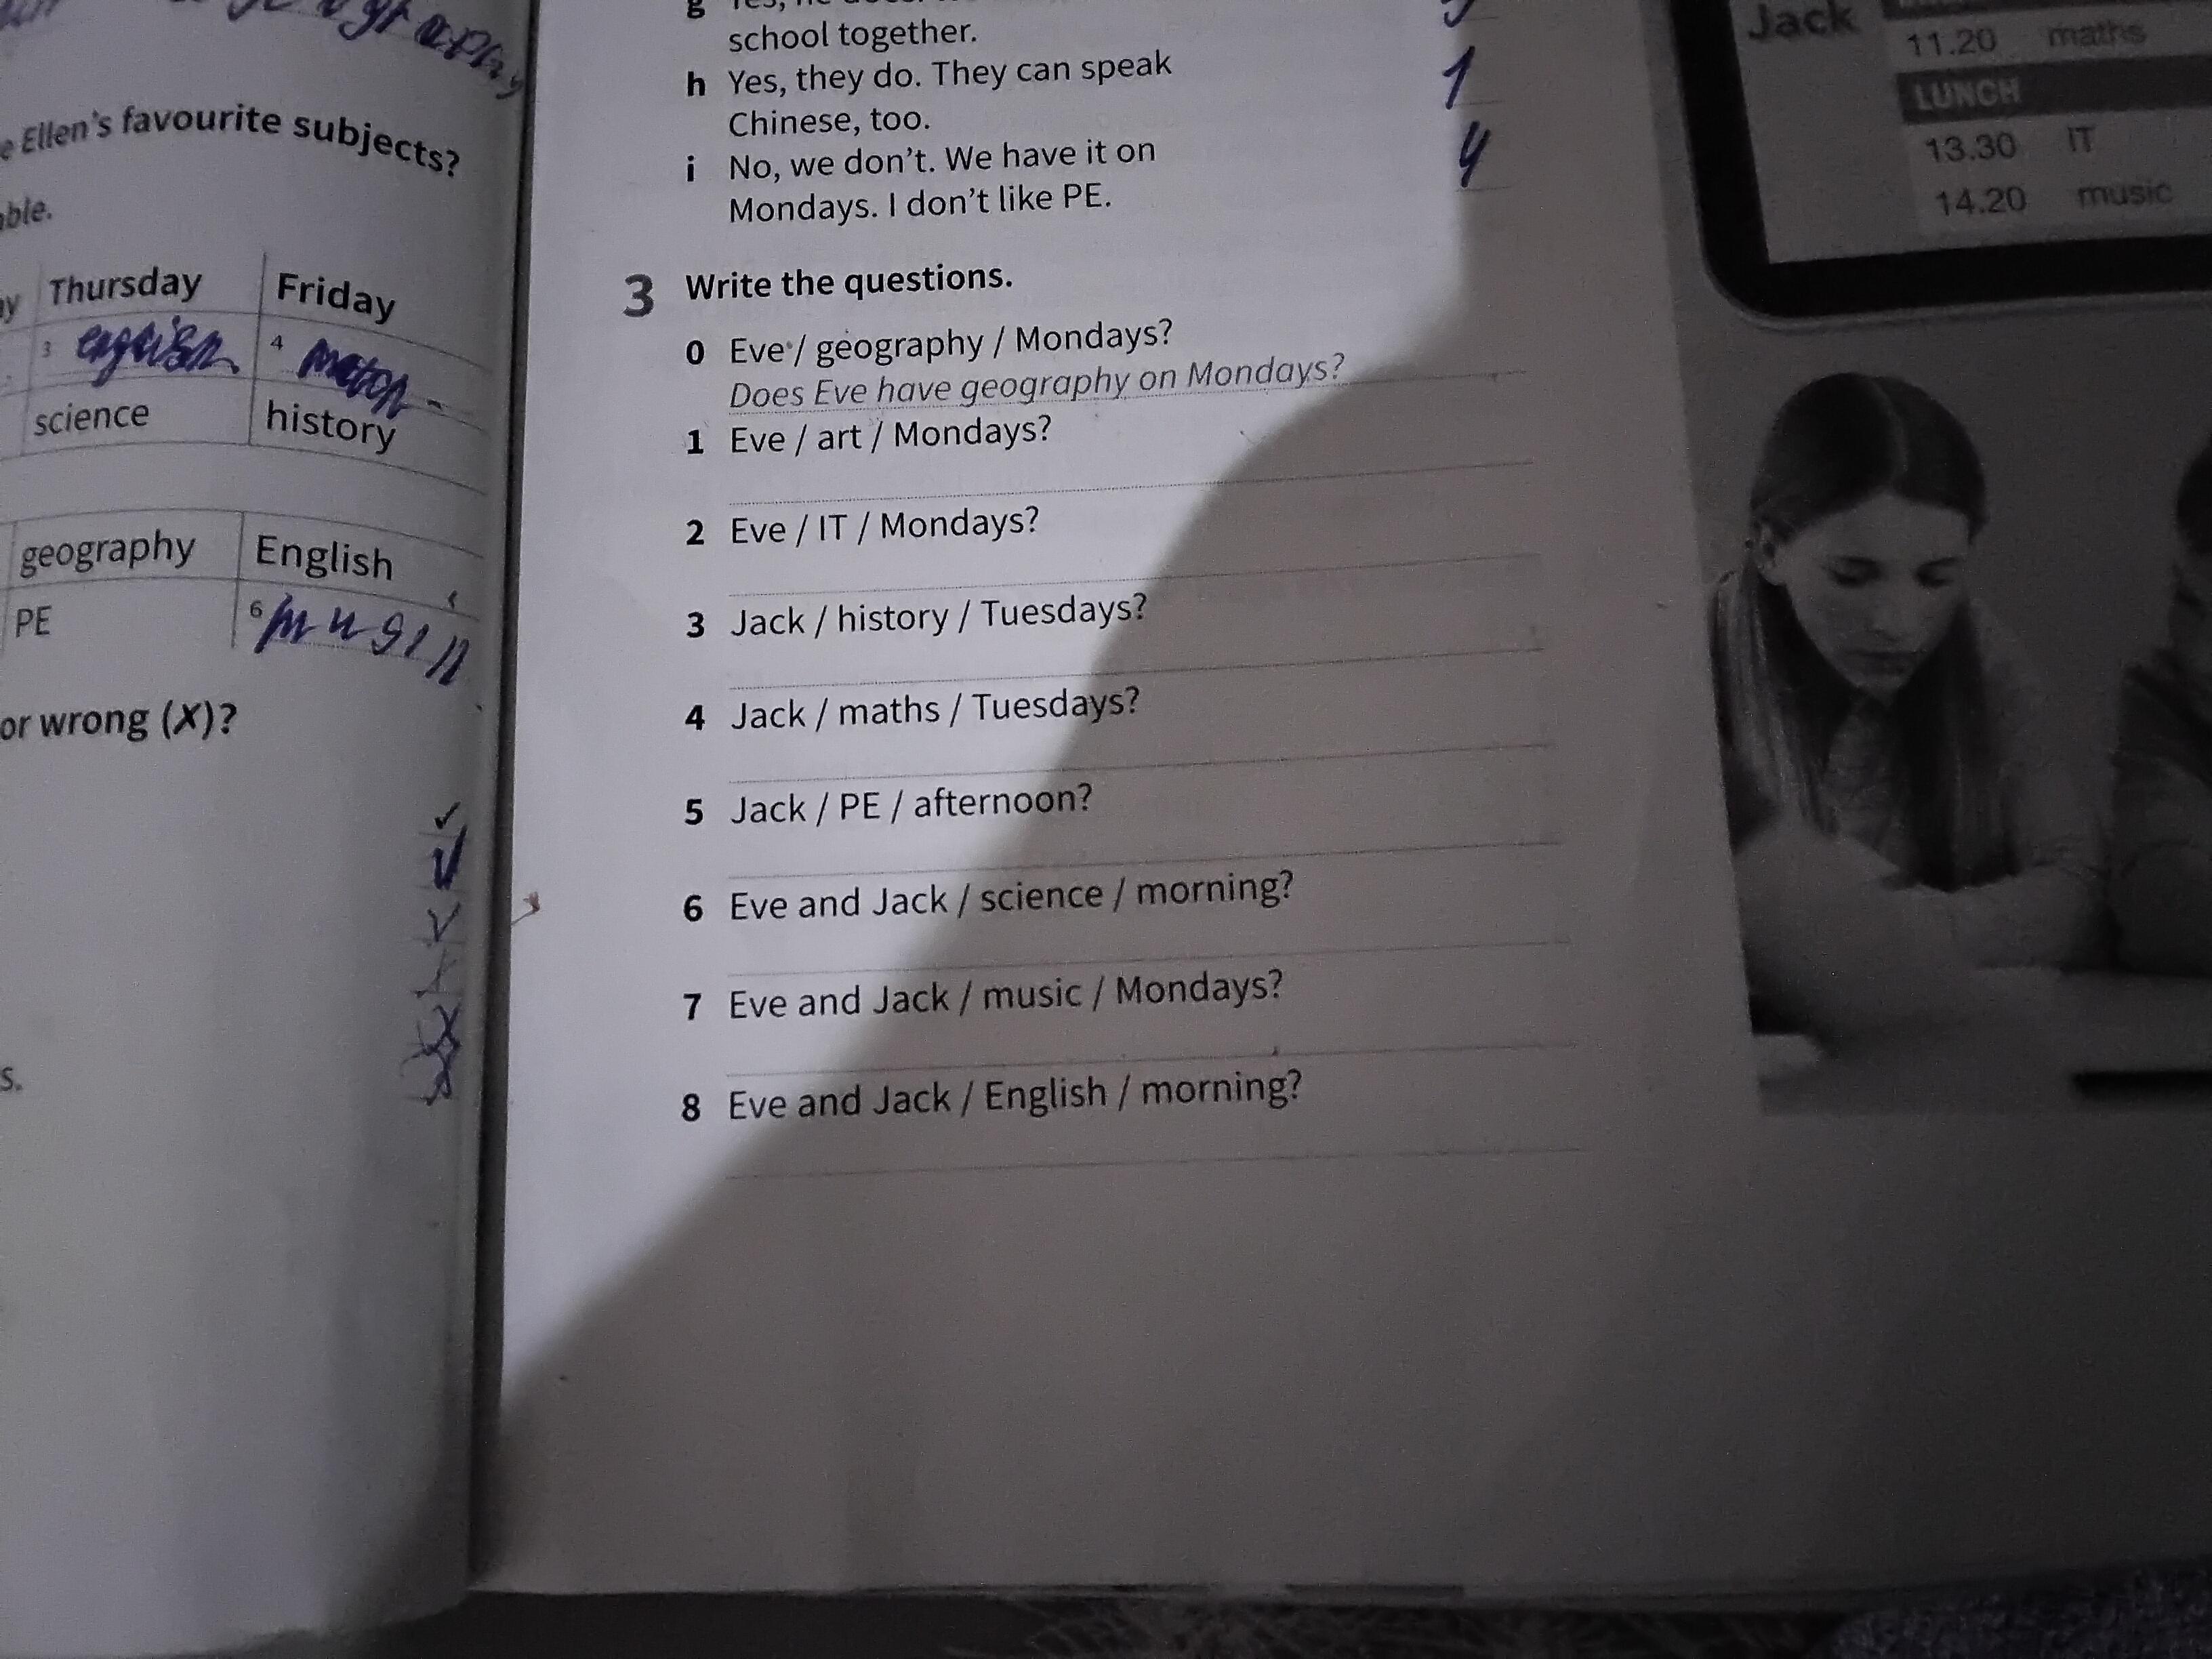 Ellen's favourite subjects?
Thursday Friday
3 english 4
science history
geography English
PE 6
or wrong (X)?
s.
g
school together.
h Yes, they do. They can speak 1
Chinese, too.
i No, we don't. We have it on 4
Mondays. I don't like PE.
3 Write the questions.
0 Eve / geography / Mondays?
Does Eve have geography on Mondays?
1 Eve / art / Mondays?
2 Eve / IT / Mondays?
3 Jack / history / Tuesdays?
4 Jack / maths / Tuesdays?
5 Jack / PE / afternoon?
6 Eve and Jack / science / morning?
7 Eve and Jack / music / Mondays?
8 Eve and Jack / English / morning?
Jack
11.20 maths
LUNCH
13.30 IT
14.20 music